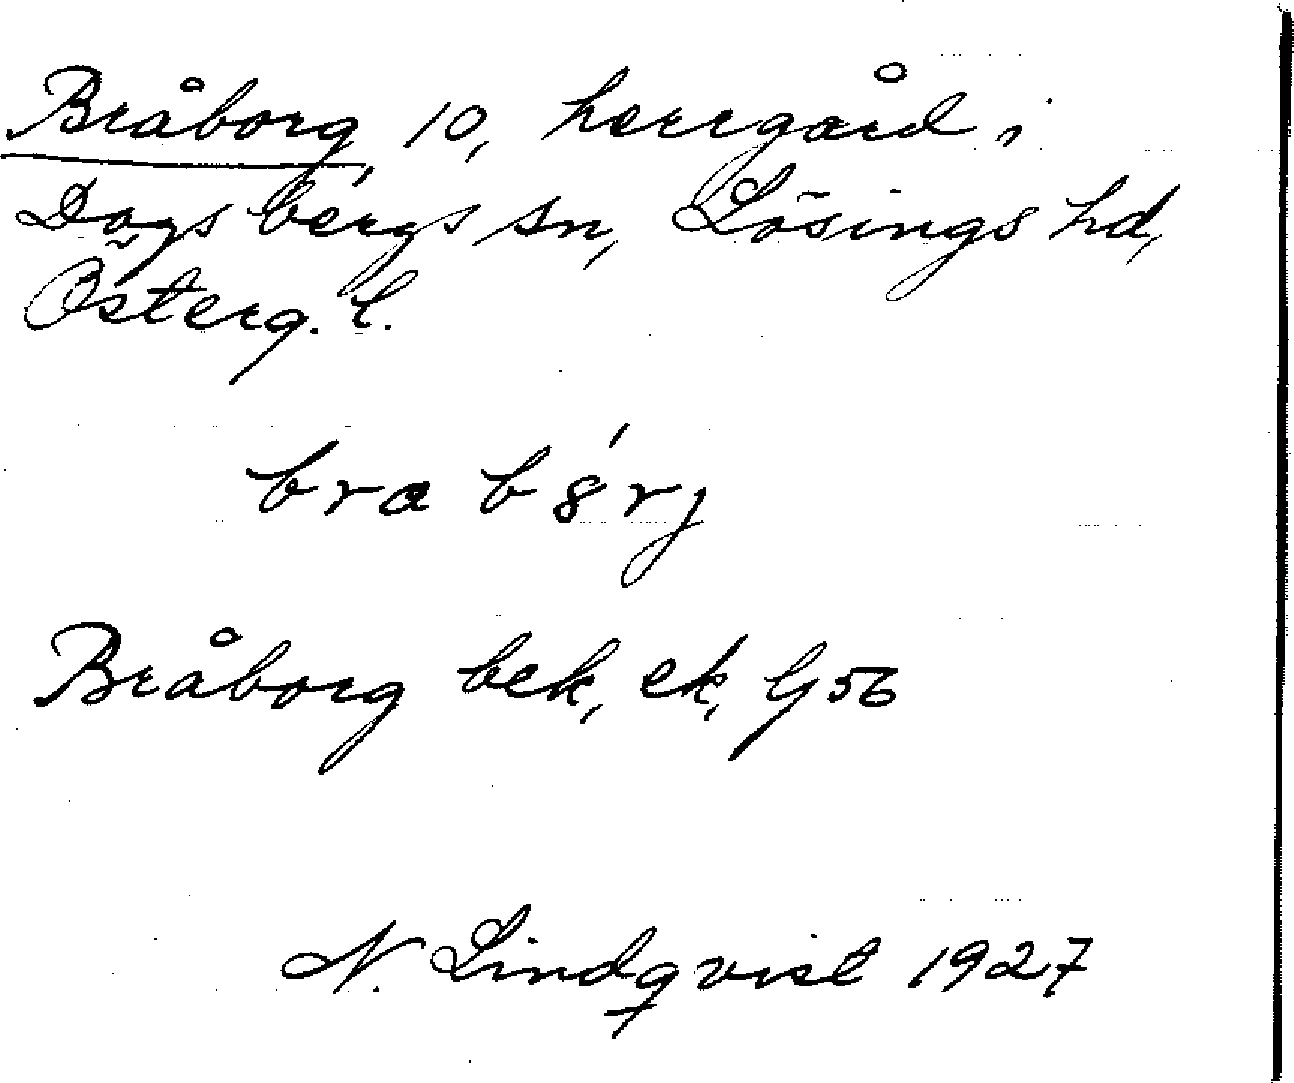 Bråborg, 10, herrgård i
Dagsbergs sn, Lösings hd,
Österg. l.
Bråborg bek, ek, G56
N. Lindqvist 1927